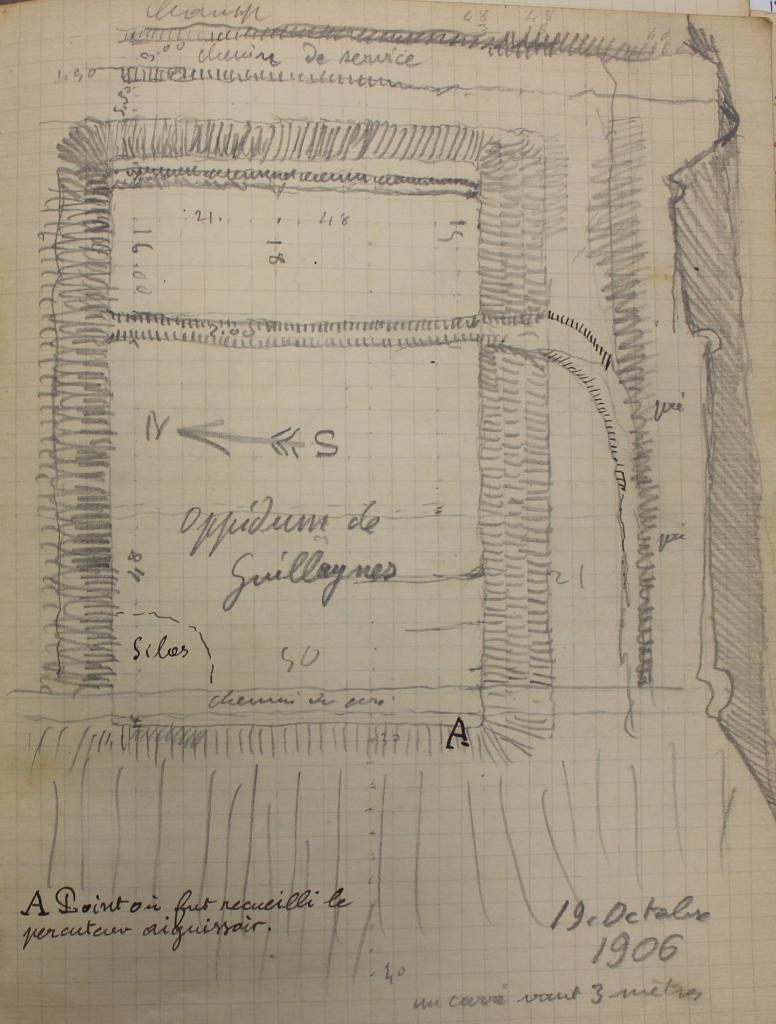 champ
48 48
chemin de service
1.50
21. 48
18
15
16.00
2.00
pré
N S
Oppidum de
Guillaynes
pré
48
21
Silos
50
chemin du pré
30
A
A Point où fut recueilli le
percuteur aiguissoir.
19. Octobre
1906
40
un carré vaut 3 mètres